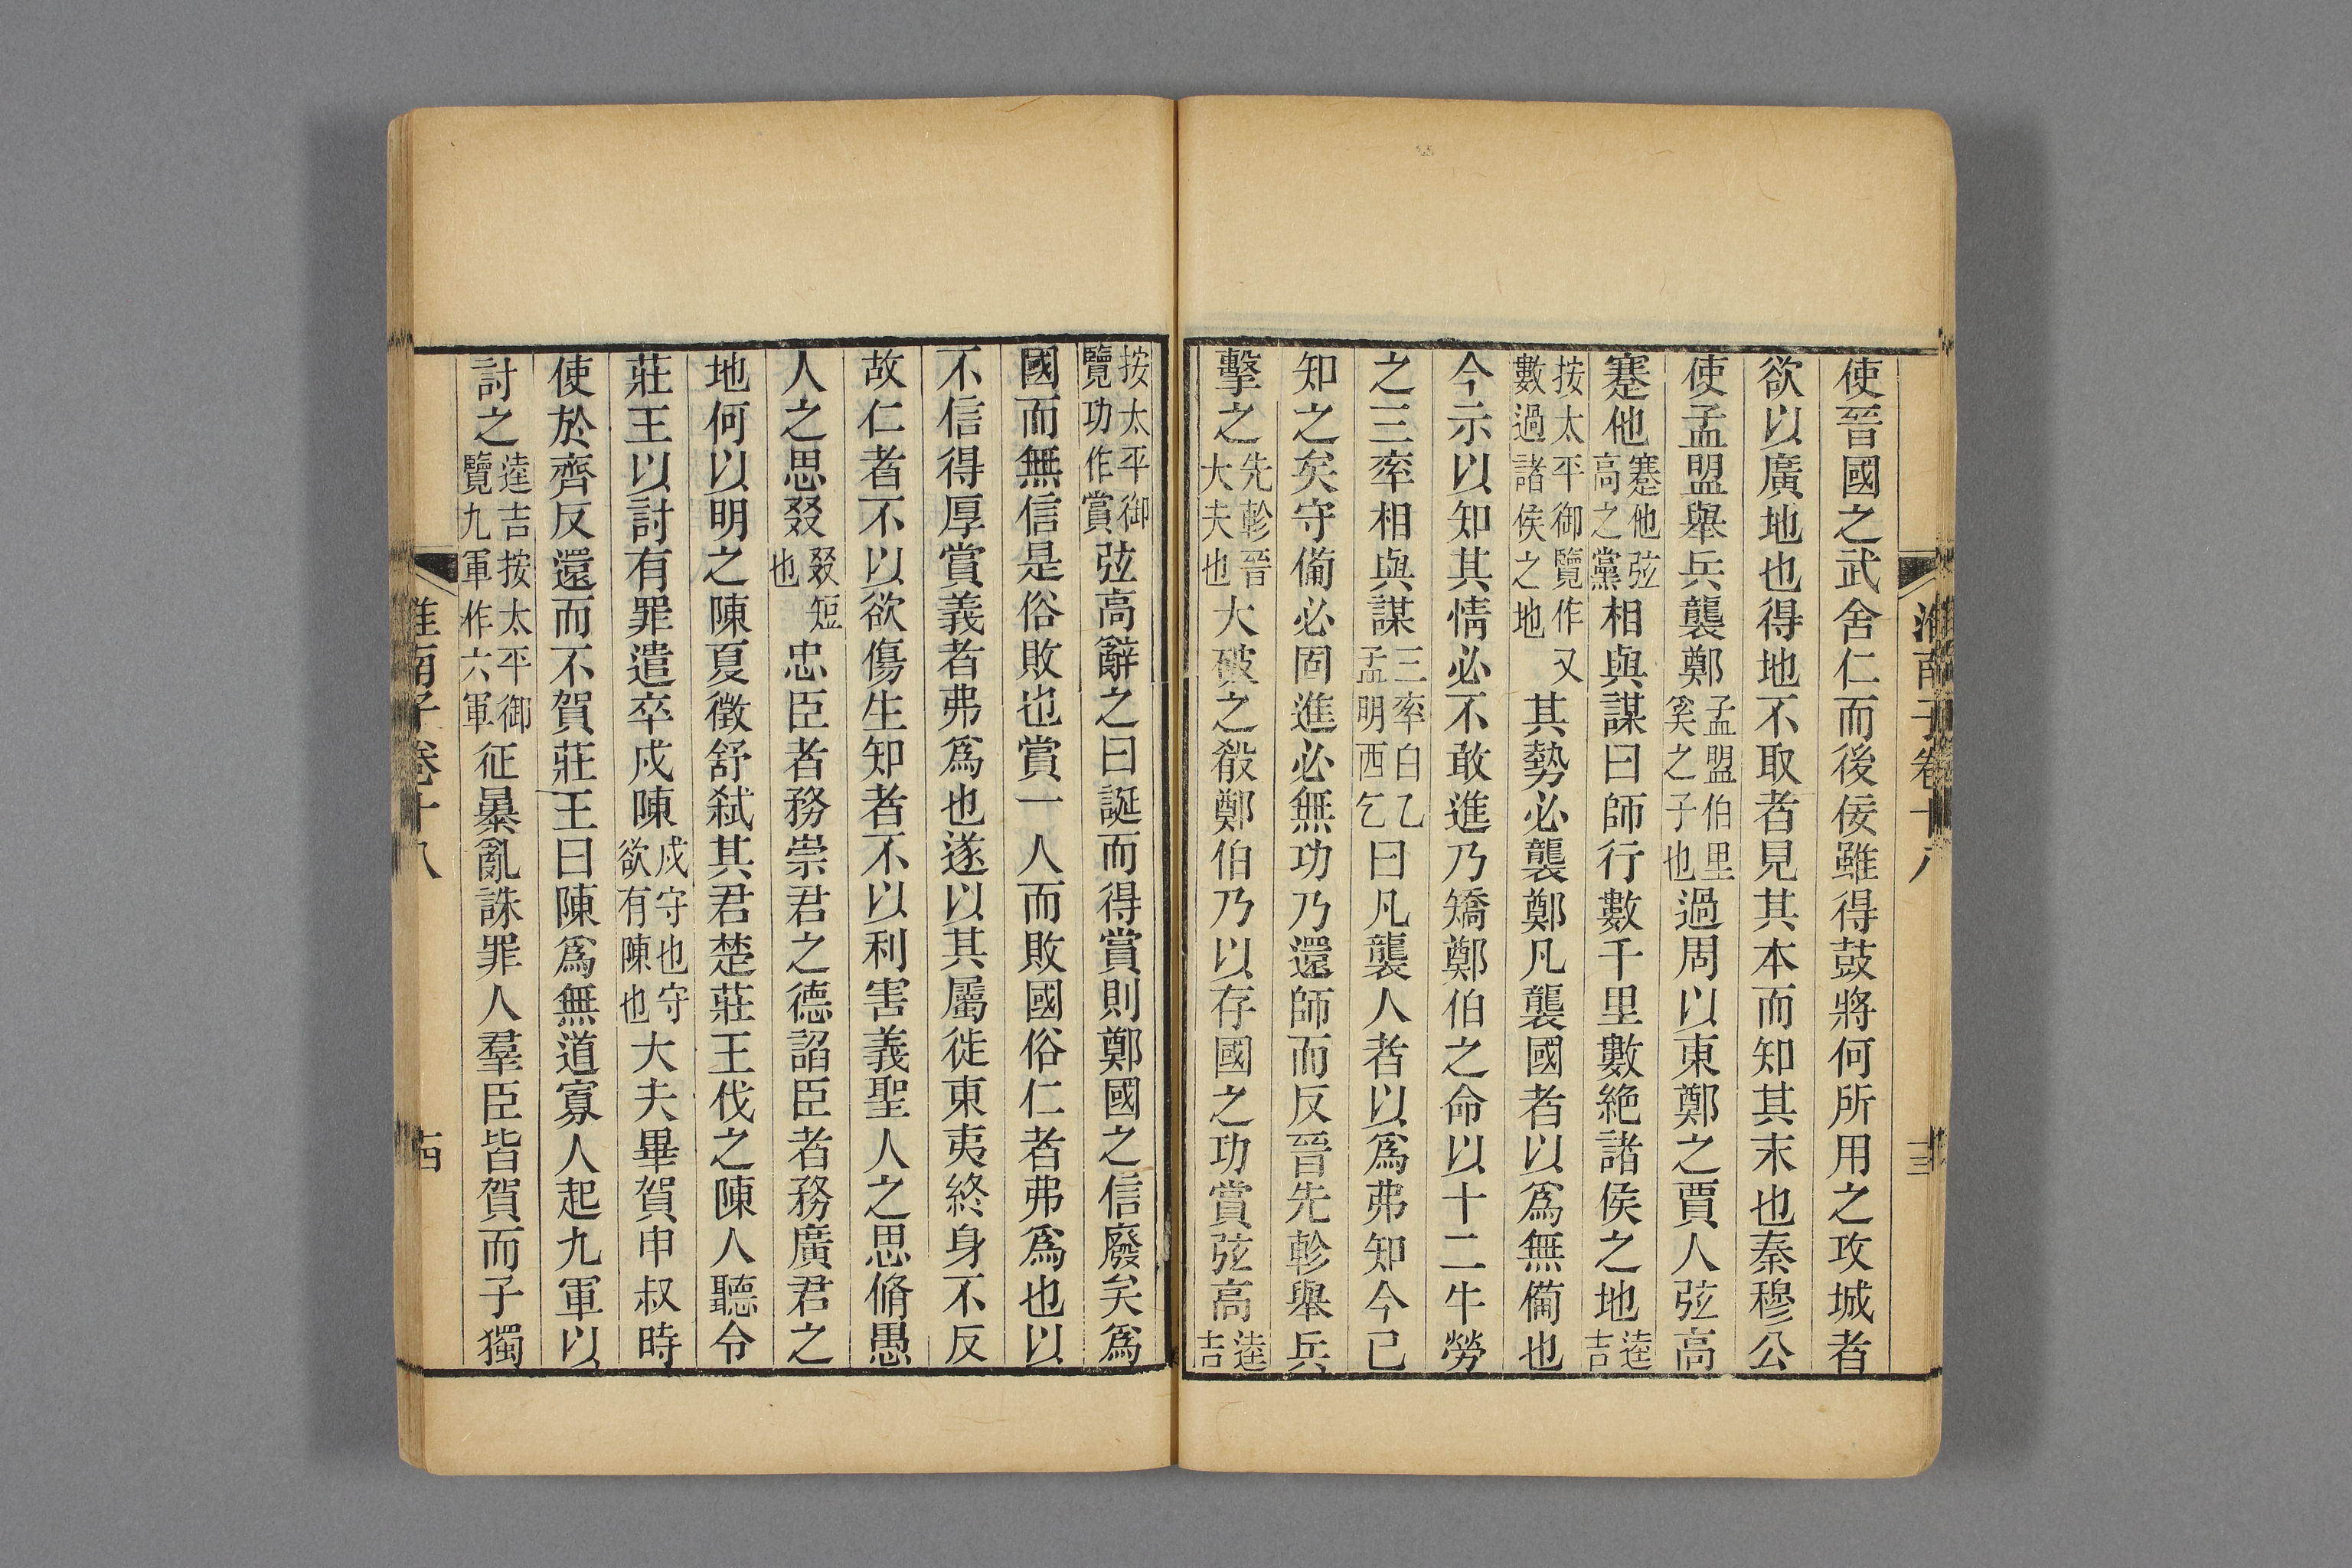 使晉國之武舍仁而後佞雖得鼓將何所用之攻城者
欲以廣地也得地不取者見其本而知其末也秦穆公
使孟盟舉兵襲鄭孟盟伯里奚之子也過周以東鄭之賈人弦高
蹇他蹇他弦高之黨相與謀曰師行數千里數絕諸侯之地逵吉
按太平御覽作又數過諸侯之地其勢必襲鄭凡襲國者以爲無備也
今示以知其情必不敢進乃矯鄭伯之命以十二牛勞
之三率相與謀三率白乙孟明西乞曰凡襲人者以爲弗知今已
知之矣守備必固進必無功乃還師而反晉先軫舉兵
擊之先軫晉大夫也大破之殽鄭伯乃以存國之功賞弦高逵吉
按太平御覽功作賞弦高辭之曰誕而得賞則鄭國之信廢矣爲
國而無信是俗敗也賞一人而敗國俗仁者弗爲也以
不信得厚賞義者弗爲也遂以其屬徙東夷終身不反
故仁者不以欲傷生知者不以利害義聖人之思脩愚
人之思叕叕短也忠臣者務崇君之德諂臣者務廣君之
地何以明之陳夏徵舒弒其君楚莊王伐之陳人聽令
莊王以討有罪遣卒戍陳戍守也守欲有陳也大夫畢賀申叔時
使於齊反還而不賀莊王曰陳爲無道寡人起九軍以
討之逵吉按太平御覽九軍作六軍征暴亂誅罪人羣臣皆賀而子獨
淮南子卷十八
十三
淮南子卷十八
十四